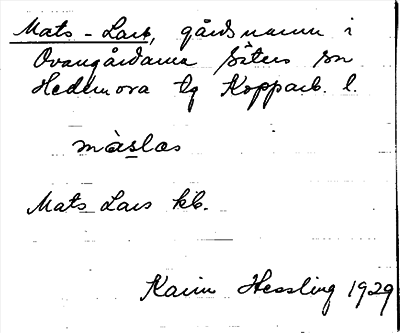 Mats - Lars, gårdsnamn i
Ovangårdarna Säters sn
Hedemora tg Kopparb. l.
màslas
Mats Lars kb.
Karin Hessling 1929